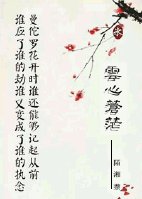 曼陀罗花开时谁还能够记起从前
谁应了谁的劫谁又变成了谁的执念
雲心蒼茫
陌湘萘